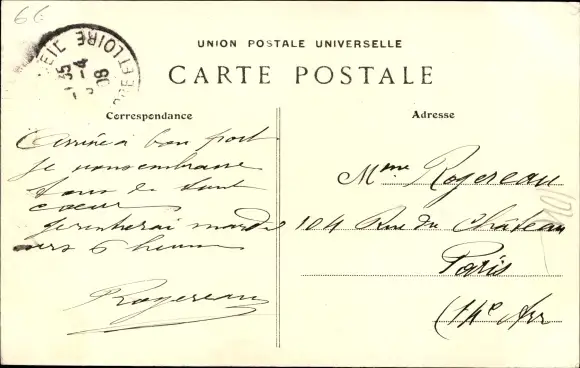 66
ET LOIRE
35
-4
08
UNION POSTALE UNIVERSELLE
CARTE POSTALE
Correspondance
Adresse
Arrivée à bon port
je vous embrasse
tous de tout
coeur
je rentrerai mardi
vers 6 heures
Rogereau
Mme Rogereau
104 Rue du Château
Paris
(14e Arr